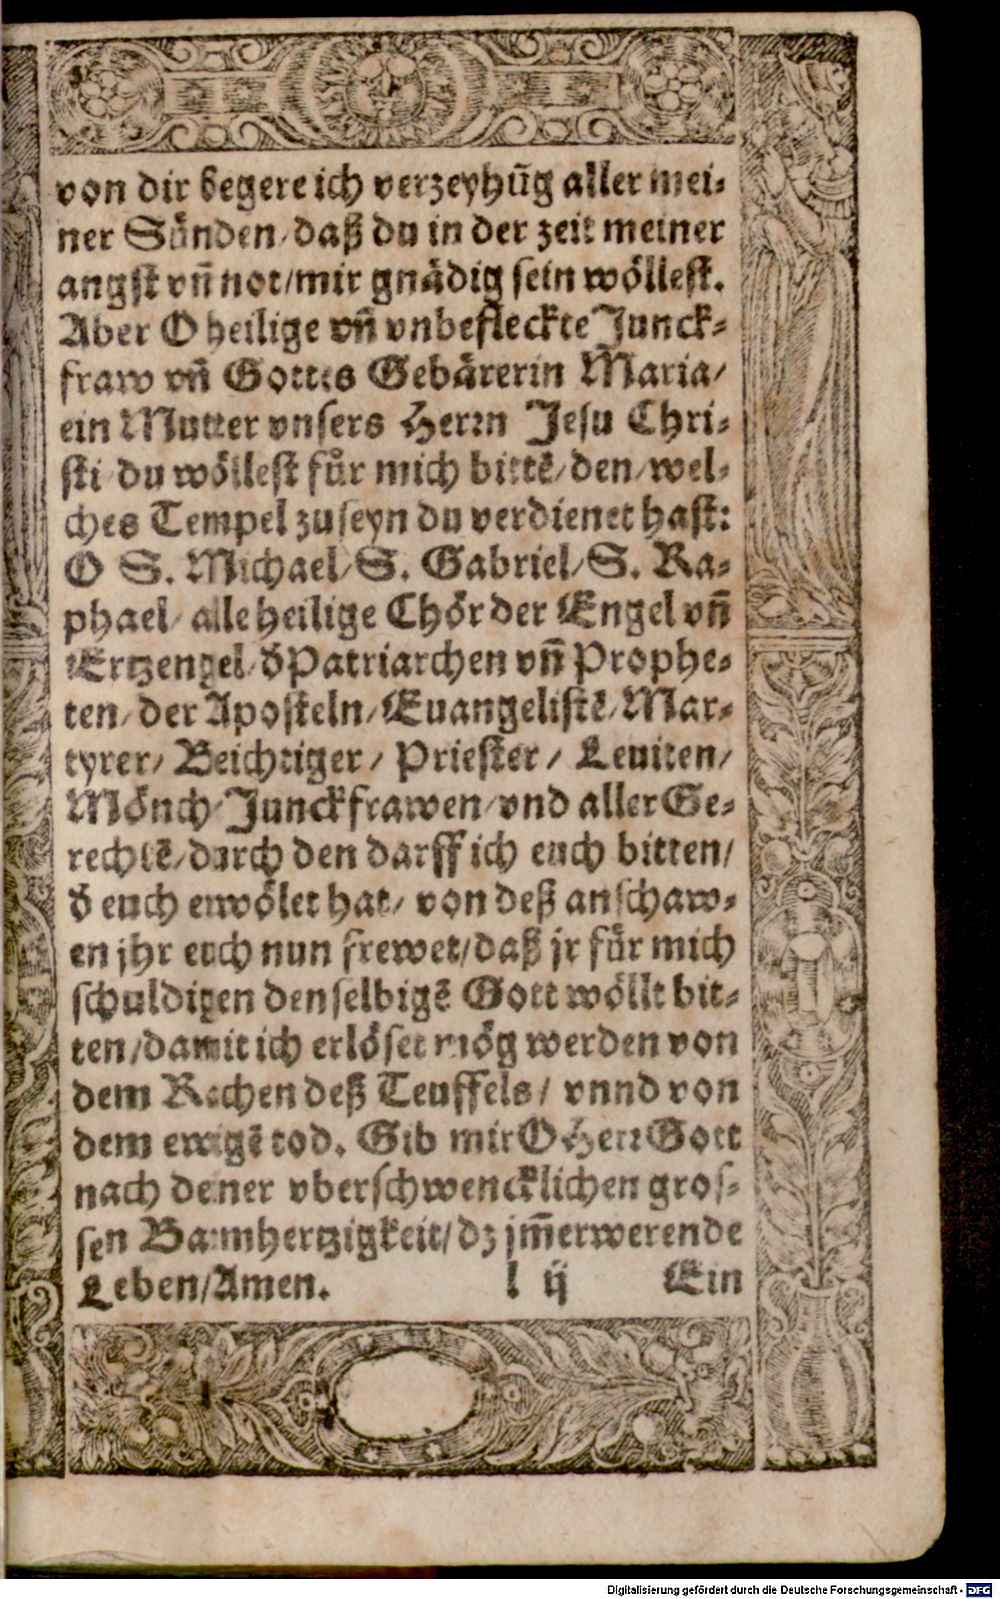 von dir begere ich verzeyhũg aller mei-
ner Sünden/daß du in der zeit meiner
angst vñ not/mir gnädig sein wöllest.
Aber O heilige vñ vnbefleckte Junck-
fraw vñ Gottes Gebärerin Maria/
ein Mutter vnsers Herrn Jesu Chri-
sti/du wöllest für mich bittẽ/den/wel-
ches Tempel zu seyn du verdienet hast:
O S. Michael/S. Gabriel/S. Ra-
phael/alle heilige Chör der Engel vñ
Ertzengel/d̕ Patriarchen vñ Prophe-
ten/der Aposteln/Euangelistẽ/Mar-
tyrer/Beichtiger/Priester/Leuiten/
Mönch/Junckfrawen/vnd aller Ge-
rechtẽ/durch den darff ich euch bitten/
d̕ euch erwölet hat/von deß anschaw-
en jhr euch nun frewet/daß jr für mich
schuldigen denselbigẽ Gott wöllt bit-
ten/damit ich erlöset mög werden von
dem Rachen deß Teuffels/vnnd von
dem ewigẽ tod. Gib mir O Herr Gott
nach deiner vberschwencklichen gros-
sen Barmhertzigkeit/dz jm̃erwerende
Leben/Amen. l ij Ein
Digitalisierung gefördert durch die Deutsche Forschungsgemeinschaft - DFG